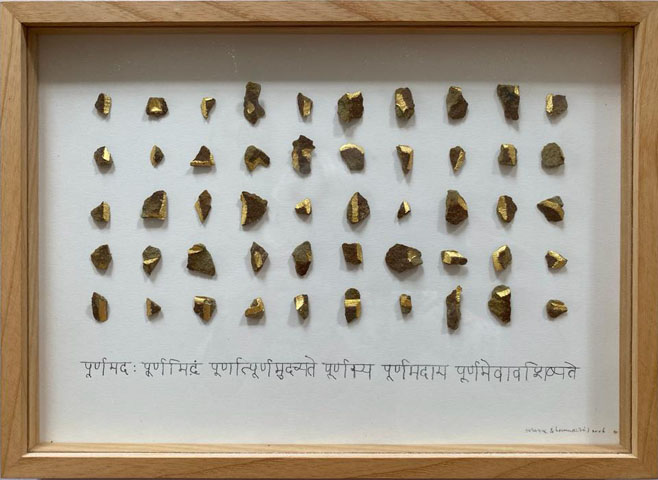 पूर्णमद: पूर्णमिदं पूर्णात्पूर्णमुदच्यते पूर्णस्य पूर्णमदाय पूर्णमेवावशिष्यते